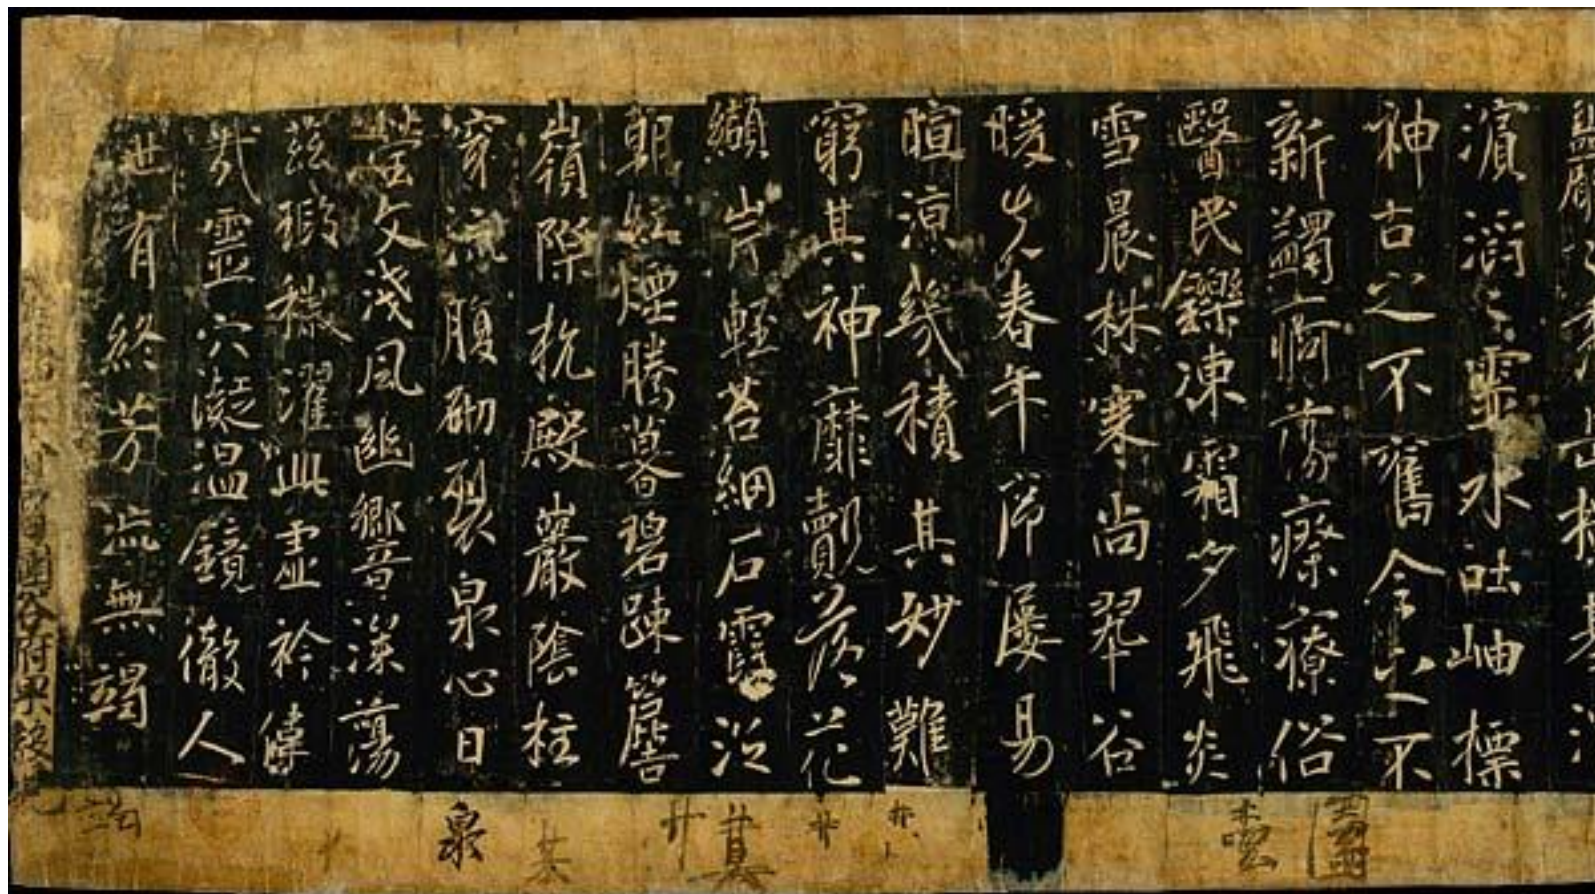 濱滔〻靈水吐岫標
神古之不舊今之不
新蠲痾蕩瘵療俗
醫民鑠凍霜夕飛炎
雪晨林寒尚翠谷
暖先春年序屢易
暄涼幾積其妙難
窮其神靡覿落花
纈岸輕苔網石霞泛
朝紅煙騰暮碧疎簷
嶺際抗殿巖陰柱
穿流腹砌裂泉心日
瑩文淺風幽響深蕩
茲瑕穢濯此虛衿偉
哉靈穴凝溫鏡徹人
世有終芳流無竭
泉
谷府果毅兒